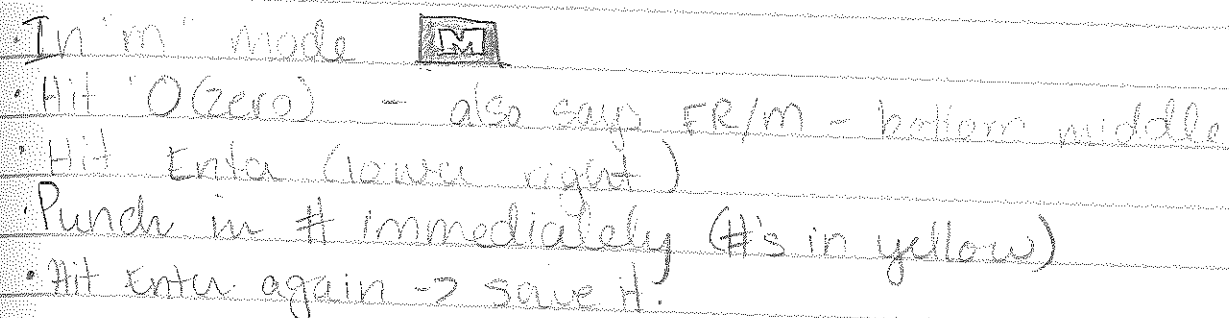 • In "m" mode M
• Hit 'O (zero) - also says FR/M - bottom middle
• Hit Enter (lower right)
• Punch in # immediately (#'s in yellow)
• Hit Enter again -> save it.